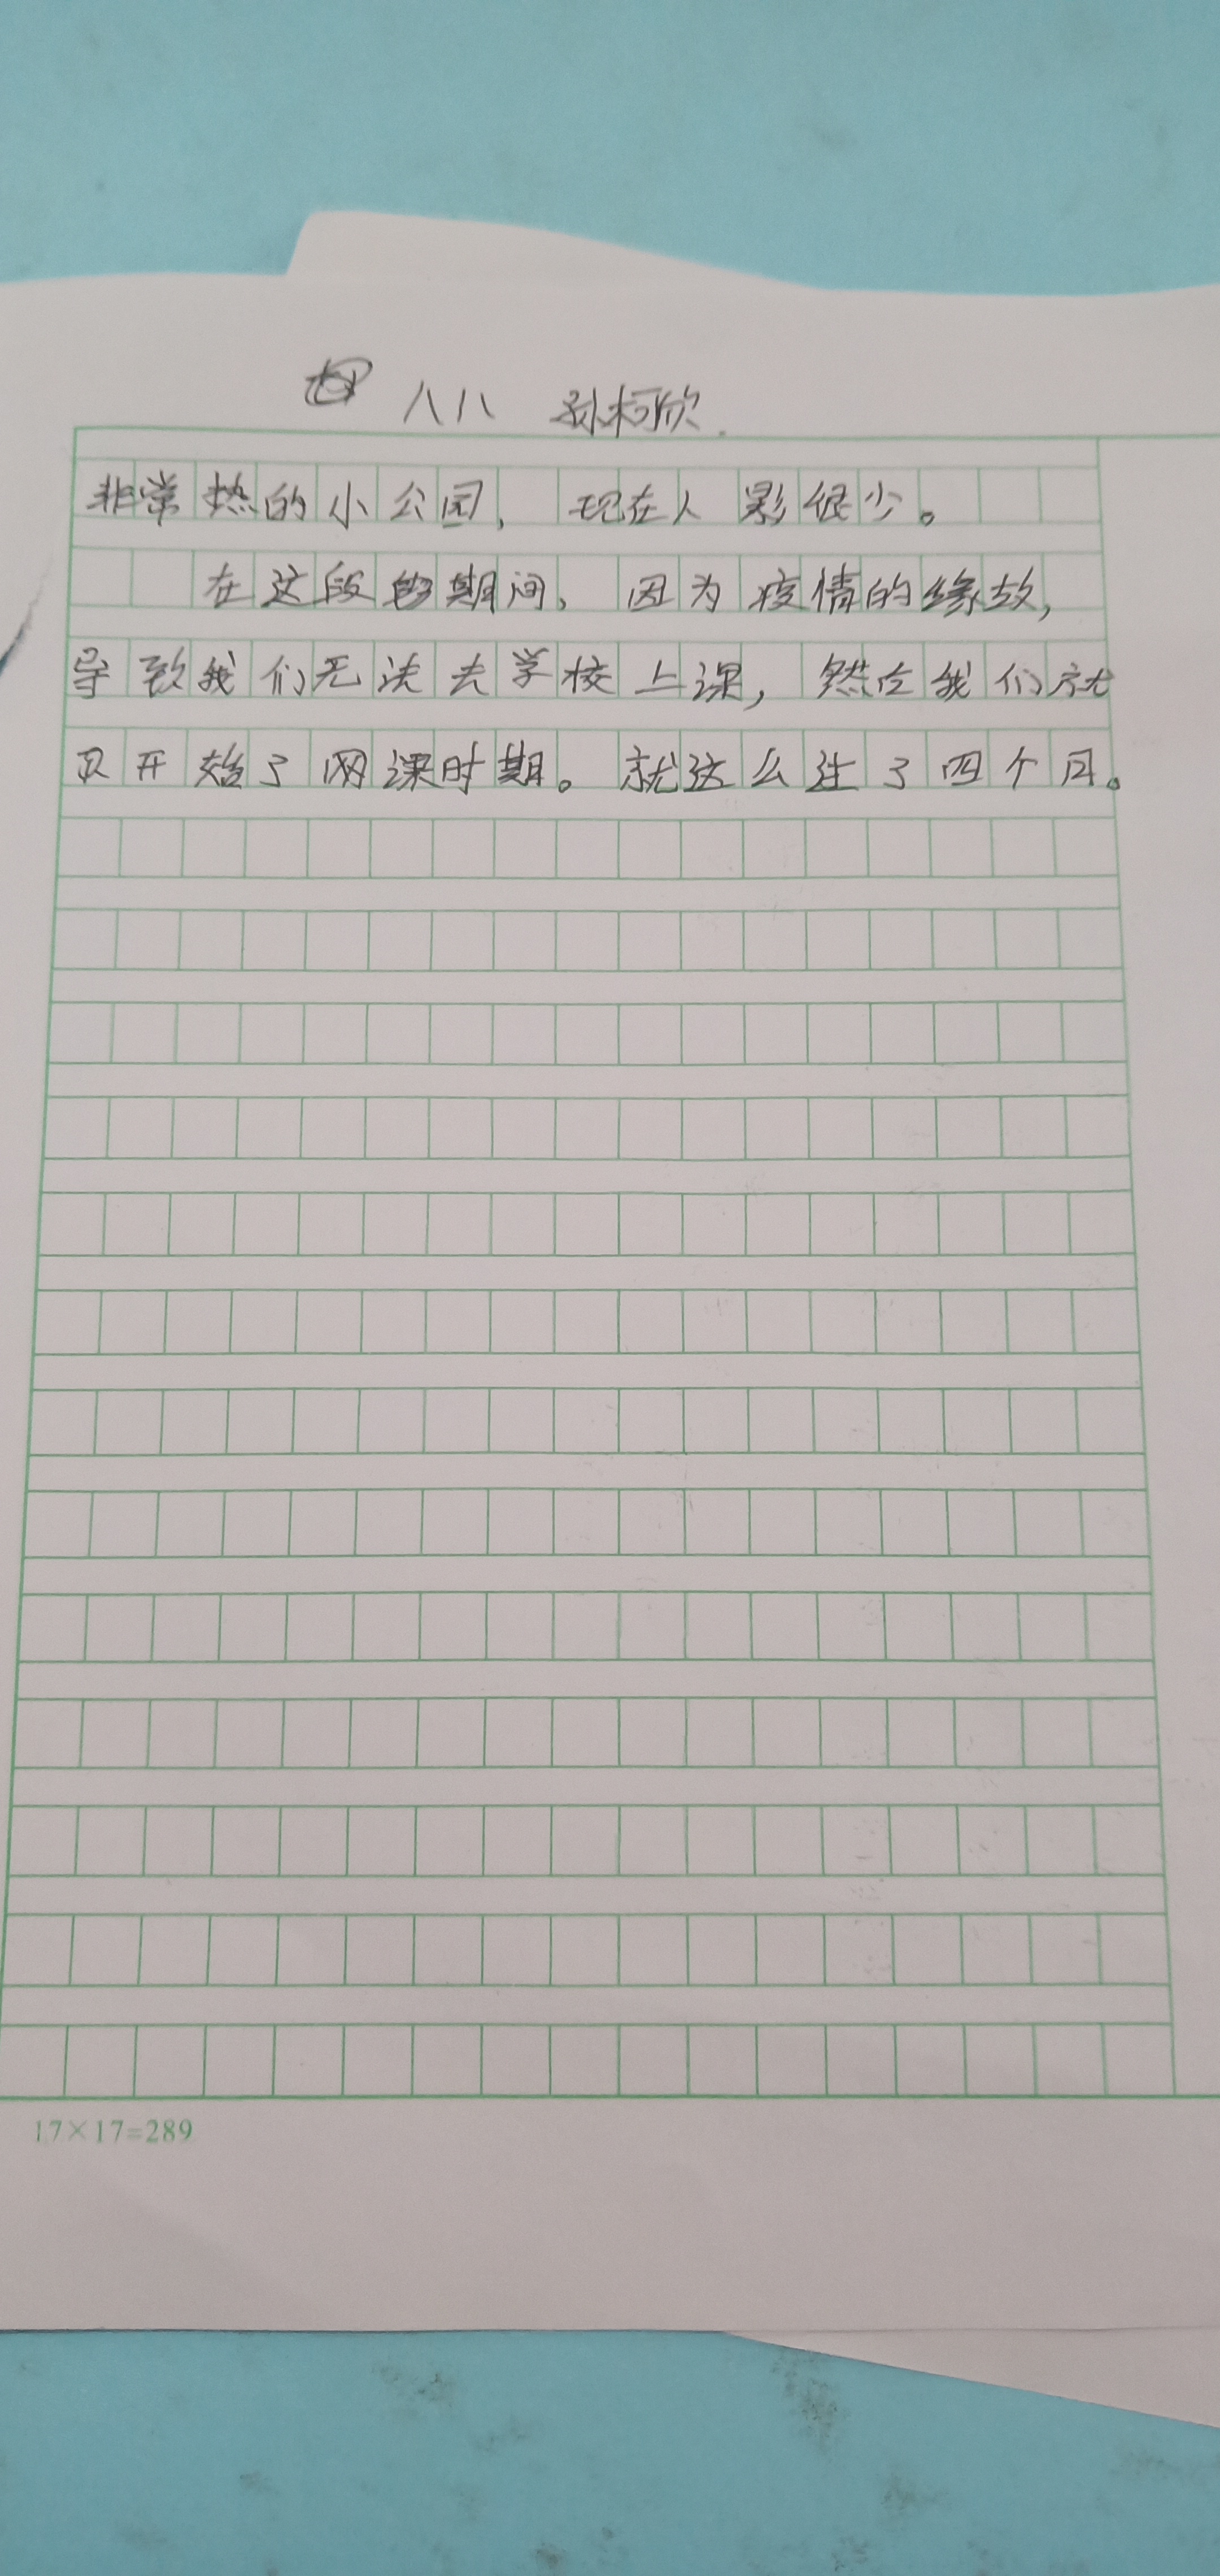 八八 孙柯欣
非常热的小公园,现在人影很少。
在这段期间,因为疫情的缘故,
导致我们无法去学校上课,然后我们就
又开始了网课时期。就这么过了四个月。
17×17=289